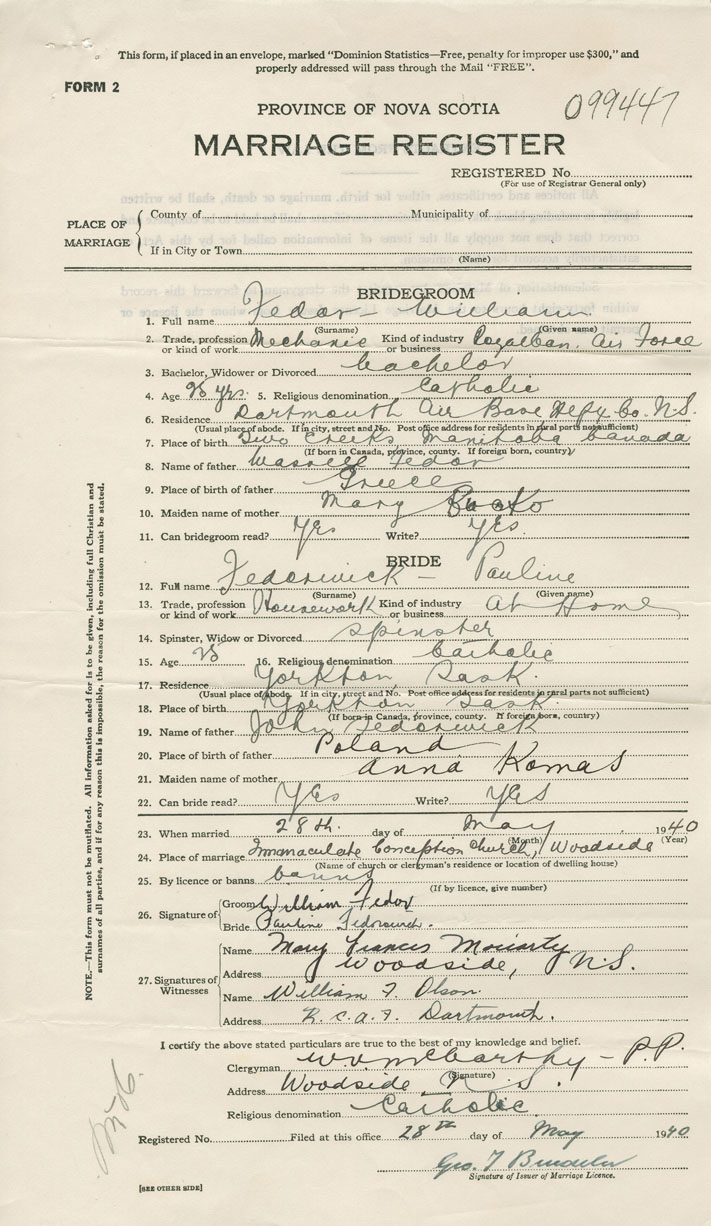 This form, if placed in an envelope, marked "Dominion Statistics—Free, penalty for improper use $300," and
properly addressed will pass through the Mail "FREE".
FORM 2
PROVINCE OF NOVA SCOTIA
099447
MARRIAGE REGISTER
REGISTERED No.
(For use of Registrar General only)
PLACE OF MARRIAGE
County of Municipality of
If in City or Town
(Name)
BRIDEGROOM
1. Full name Fedor - William
(Surname) (Given name)
2. Trade, profession or kind of work Mechanic Kind of industry or business Royal Can. Air Force
3. Bachelor, Widower or Divorced bachelor
4. Age 25 yrs. 5. Religious denomination Catholic
6. Residence Dartmouth Air Base Hfx Co. N.S.
(Usual place of abode. If in city, street and No. Post office address for residents in rural parts not sufficient)
7. Place of birth Two Creeks, Manitoba Canada
(If born in Canada, province, county. If foreign born, country)
8. Name of father Fedor
9. Place of birth of father Greece
10. Maiden name of mother Mary
11. Can bridegroom read? Yes Write? Yes.
BRIDE
12. Full name Fedorwick - Pauline
(Surname) (Given name)
13. Trade, profession or kind of work Housework Kind of industry or business At Home
14. Spinster, Widow or Divorced spinster
15. Age 25 16. Religious denomination Catholic
17. Residence Yorkton, Sask.
(Usual place of abode. If in city, street and No. Post office address for residents in rural parts not sufficient)
18. Place of birth Yorkton Sask.
(If born in Canada, province, county. If foreign born, country)
19. Name of father John Fedorwick
20. Place of birth of father Poland
21. Maiden name of mother Anna Komas
22. Can bride read? Yes Write? Yes
23. When married 28th. day of May 1940
(Month) (Year)
24. Place of marriage Immaculate Conception Church, Woodside
(Name of church or clergyman's residence or location of dwelling house)
25. By licence or banns banns
(If by licence, give number)
26. Signature of
Groom William Fedor
Bride Pauline Fedorwich.
27. Signatures of Witnesses
Name Mary Frances Moriarty
Address Woodside, N.S.
Name William F. Olson.
Address R.C.A.F. Dartmouth.
I certify the above stated particulars are true to the best of my knowledge and belief.
Clergyman W. McCarthy - P.P.
(Signature)
Address Woodside N.S.
Religious denomination Catholic.
Registered No. Filed at this office 28th day of May 1940
Geo. T
Signature of Issuer of Marriage Licence.
[SEE OTHER SIDE]
NOTE.—This form must not be mutilated. All information asked for is to be given, including full Christian and
surnames of all parties, and if for any reason this is impossible, the reason for the omission must be stated.